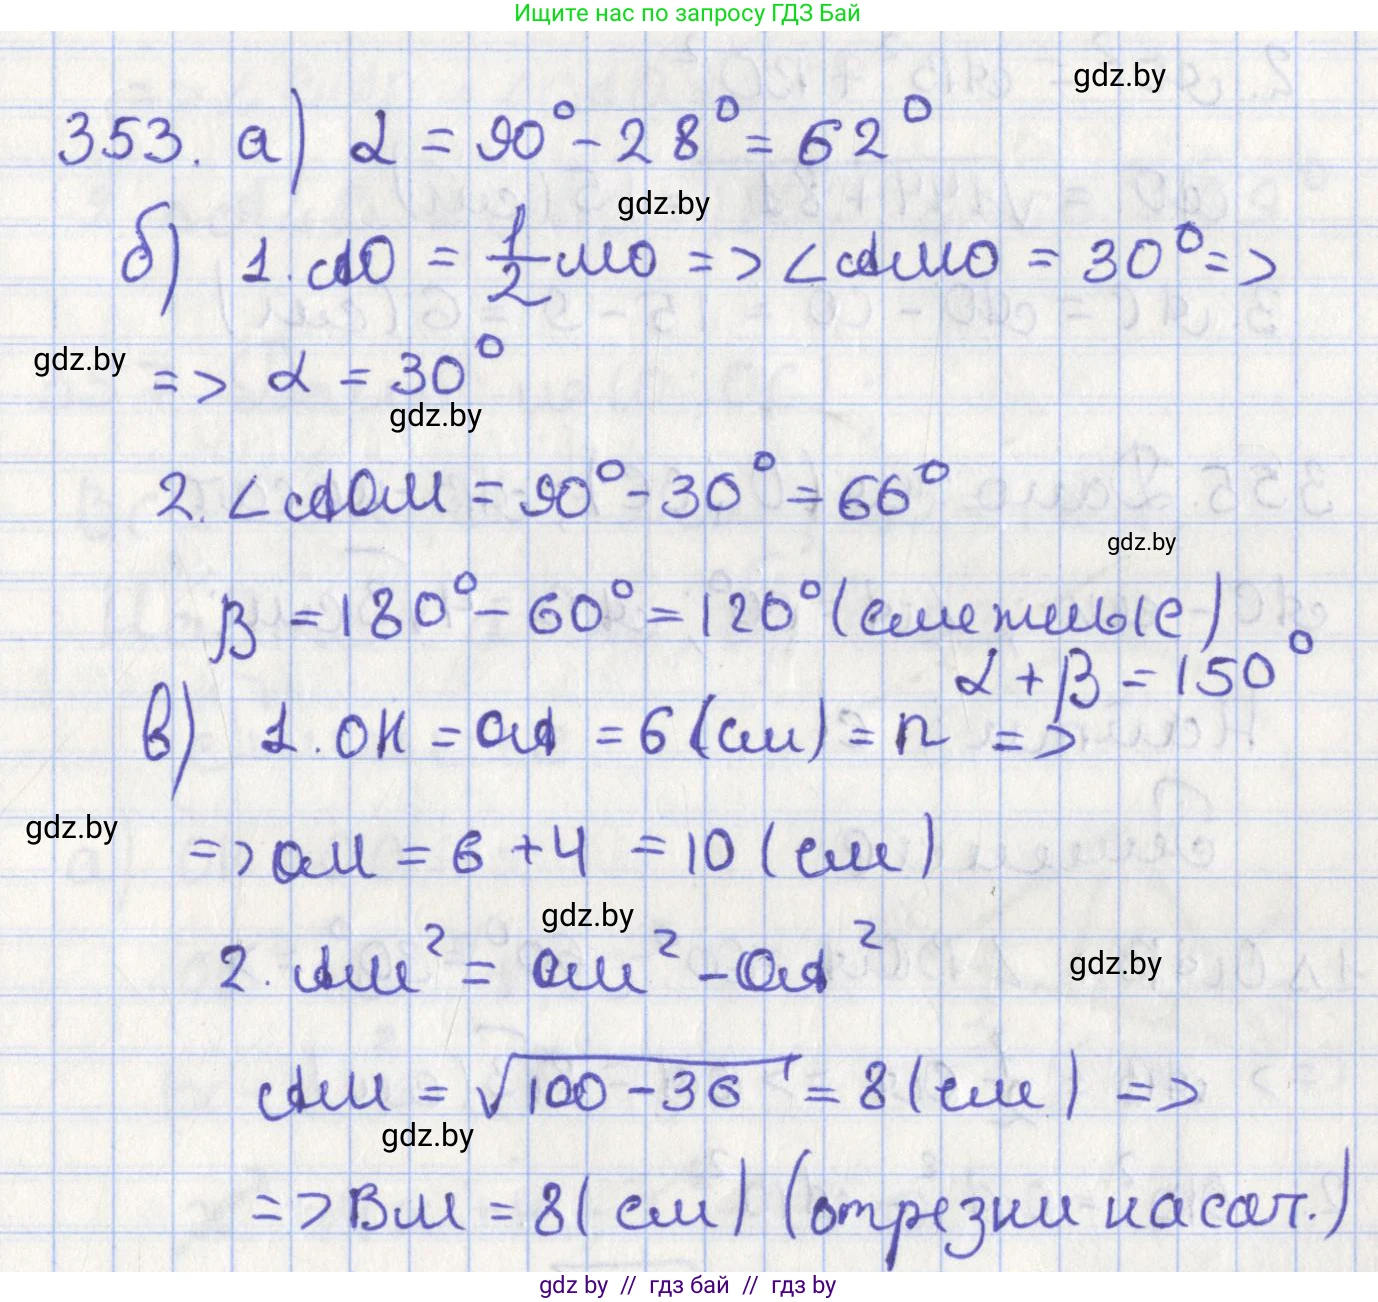 Ищите нас по запросу ГДЗ Бай
gdz.by
353. а) α = 90° - 28° = 62°
gdz.by
б) 1. AO = 1/2 MO => ∠AMO = 30° =>
gdz.by
=> α = 30°
gdz.by
2. ∠AOM = 90° - 30° = 60°
gdz.by
β = 180° - 60° = 120° (смежные)
α + β = 150°
в) 1. OK = OA = 6 (см) = r =>
gdz.by
=> OM = 6 + 4 = 10 (см)
gdz.by
2. AM² = OM² - OA²
gdz.by
AM = √100 - 36 = 8 (см) =>
gdz.by
=> BM = 8 (см) (отрезки касат.)
gdz by // гдз бай // гдз by